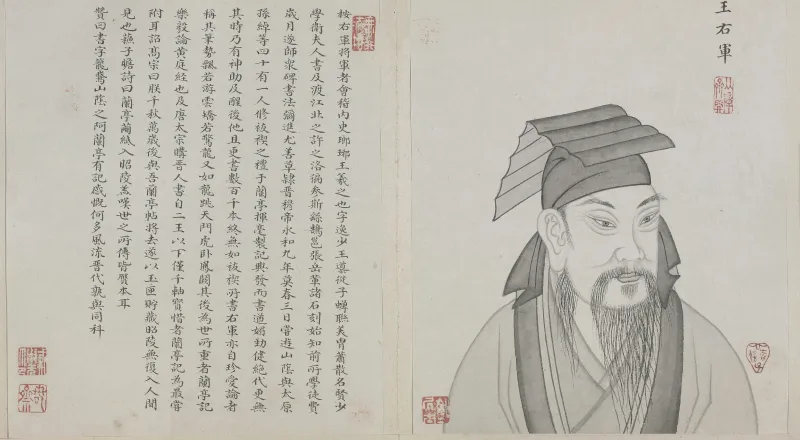 王右軍
按右軍將軍者會稽內史瑯琊王羲之也字逸少王導從子蟬聯美胄蕭散名賢少
學衛夫人書及渡江北之許之洛徧參斯繇鵠邕張岳華諸石刻始知前所學徒費
歲月遂師衆碑書法彌進尤善草隸晉穆帝永和九年莫春三日嘗遊山陰與太原
孫綽等四十有一人修祓禊之禮于蘭亭揮毫製記興發而書遒媚勁健絕代更無
其時乃有神助及醒後他日更書數百千本終無如祓禊所書右軍亦自珍愛論者
稱其筆勢飄若游雲矯若驚龍又如龍跳天門虎臥鳳闕其後為世所重者蘭亭記
樂毅論黃庭經也及唐太宗購晉人書自二王以下僅千軸寶惜者蘭亭記為最嘗
附耳詔高宗曰朕千秋萬歲後與吾蘭亭帖將去遂以玉匣貯藏昭陵無復入人間
見也蘇子瞻詩曰蘭亭繭紙入昭陵蓋嘆世之所傳皆贗本耳
贊曰書字籠鵞山陰之阿蘭亭有記感慨何多風流晉代孰與同科